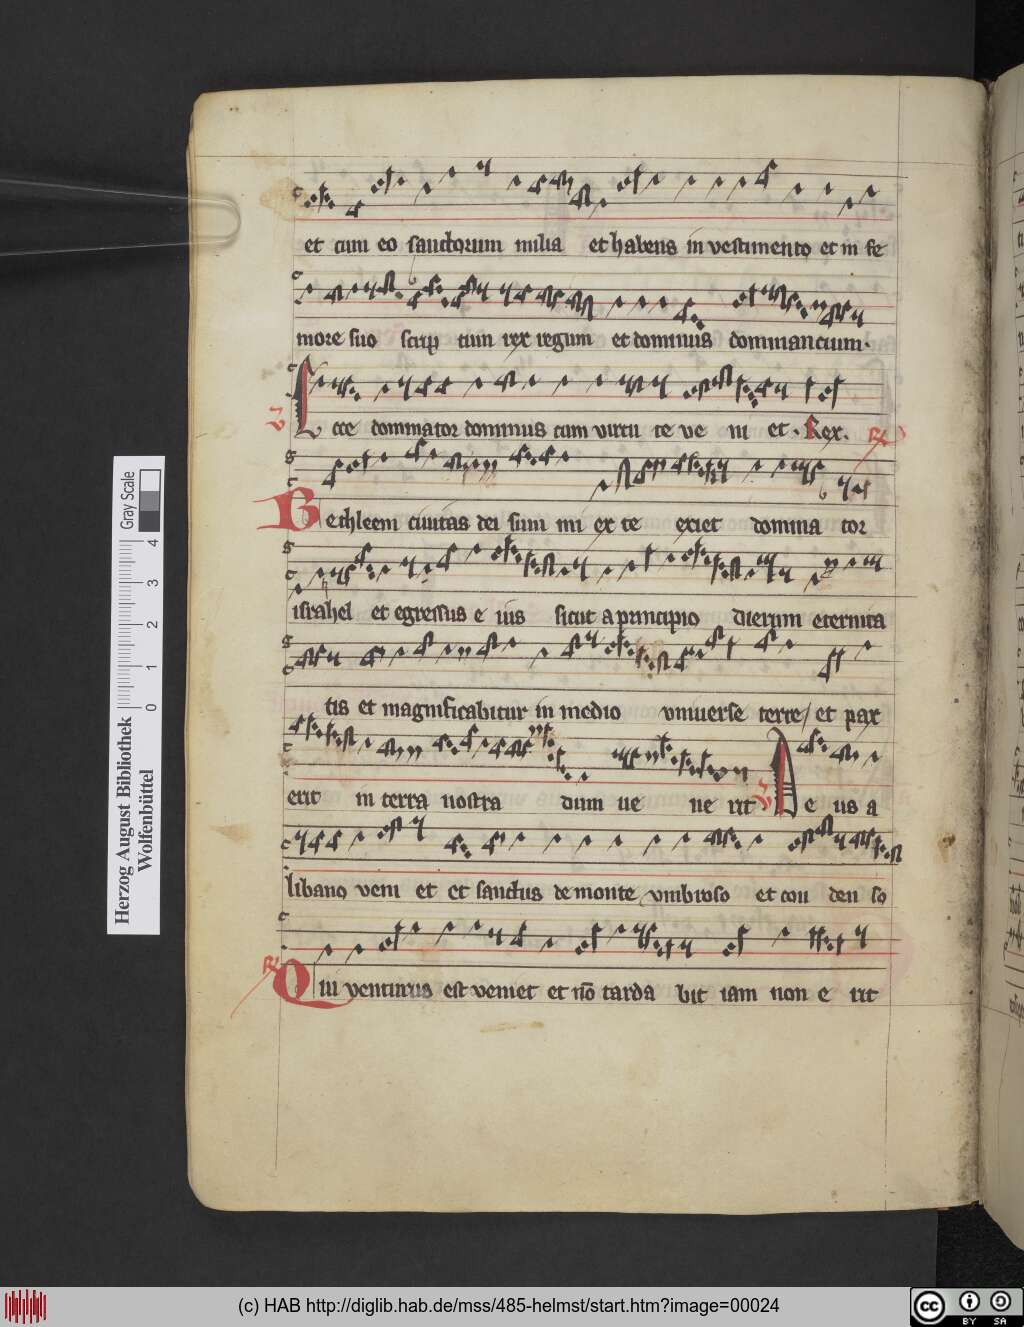 et cum eo sanctorum milia et habens in vestimento et in fe
more suo scrip tum rex regum et dominus dominancium.
V Ecce dominator dominus cum virtu te ve ni et. Rex. R
Bethleem civitas dei sum mi ex te exiet domina tor
israhel et egressus e ius sicut a principio dierum eternita
tis et magnificabitur in medio vniuerse terre/ et pax
erit in terra nostra dum ue ne rit V De us a
libano veni et et sanctus de monte vmbroso et con den so
R Qui venturus est veniet et nō tarda bit iam non e rit
Herzog August Bibliothek
Wolfenbüttel
Gray Scale
0 1 2 3 4
(c) HAB http://diglib.hab.de/mss/485-helmst/start.htm?image=00024
cc BY SA